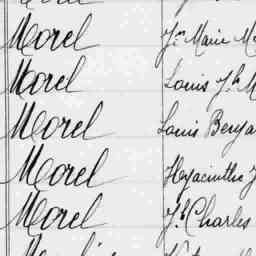 Morel Jn Marie M
Morel Louis Jh M
Morel Louis Benja
Morel Hyacinthe J
Morel Jh Charles